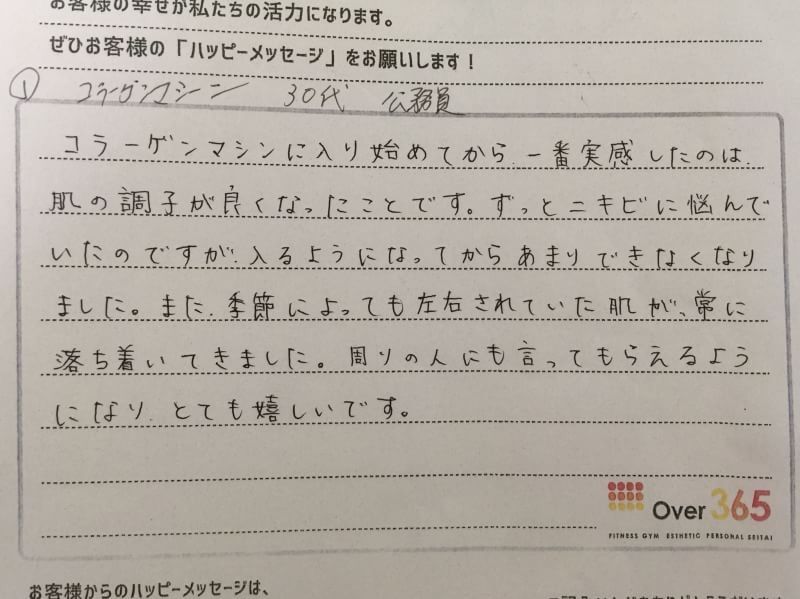 お客様の幸せが私たちの活力になります。
ぜひお客様の「ハッピーメッセージ」をお願いします！
① コラーゲンマシーン 30代 公務員
コラーゲンマシンに入り始めてから、一番実感したのは、
肌の調子が良くなったことです。ずっとニキビに悩んで
いたのですが、入るようになってからあまりできなくなり
ました。また、季節によっても左右されていた肌が、常に
落ち着いてきました。周りの人にも言ってもらえるよう
になり、とても嬉しいです。
Over 365
FITNESS GYM ESTHETIC PERSONAL SEITAI
お客様からのハッピーメッセージは、